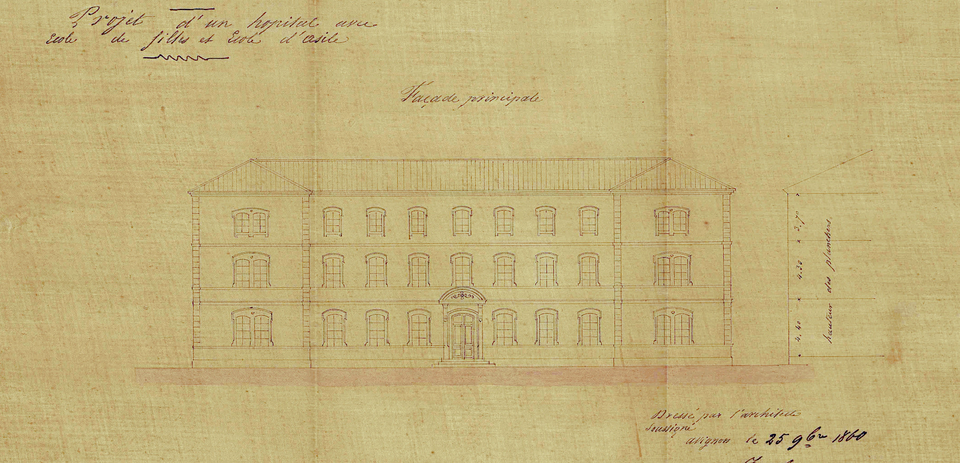 Projet d'un hopital avec
Ecole de filles et Ecole d'asile
Façade principale
3,70
4,20
4,40
hauteur des planchers.
Dressé par l'architecte
soussigné
avignon le 25 9bre 1860